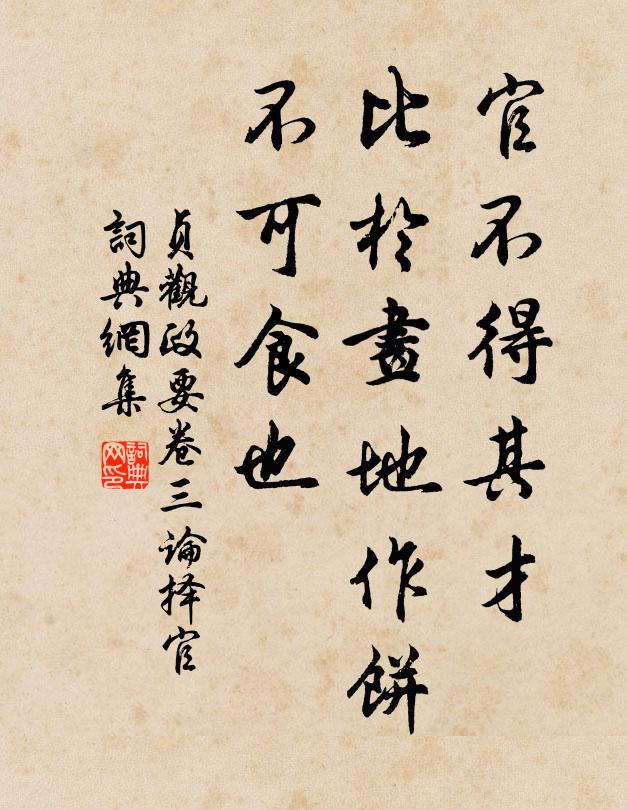 官不得其才
比於畫地作餅
不可食也
貞觀政要卷三论择官
詞典網集
詞典网印